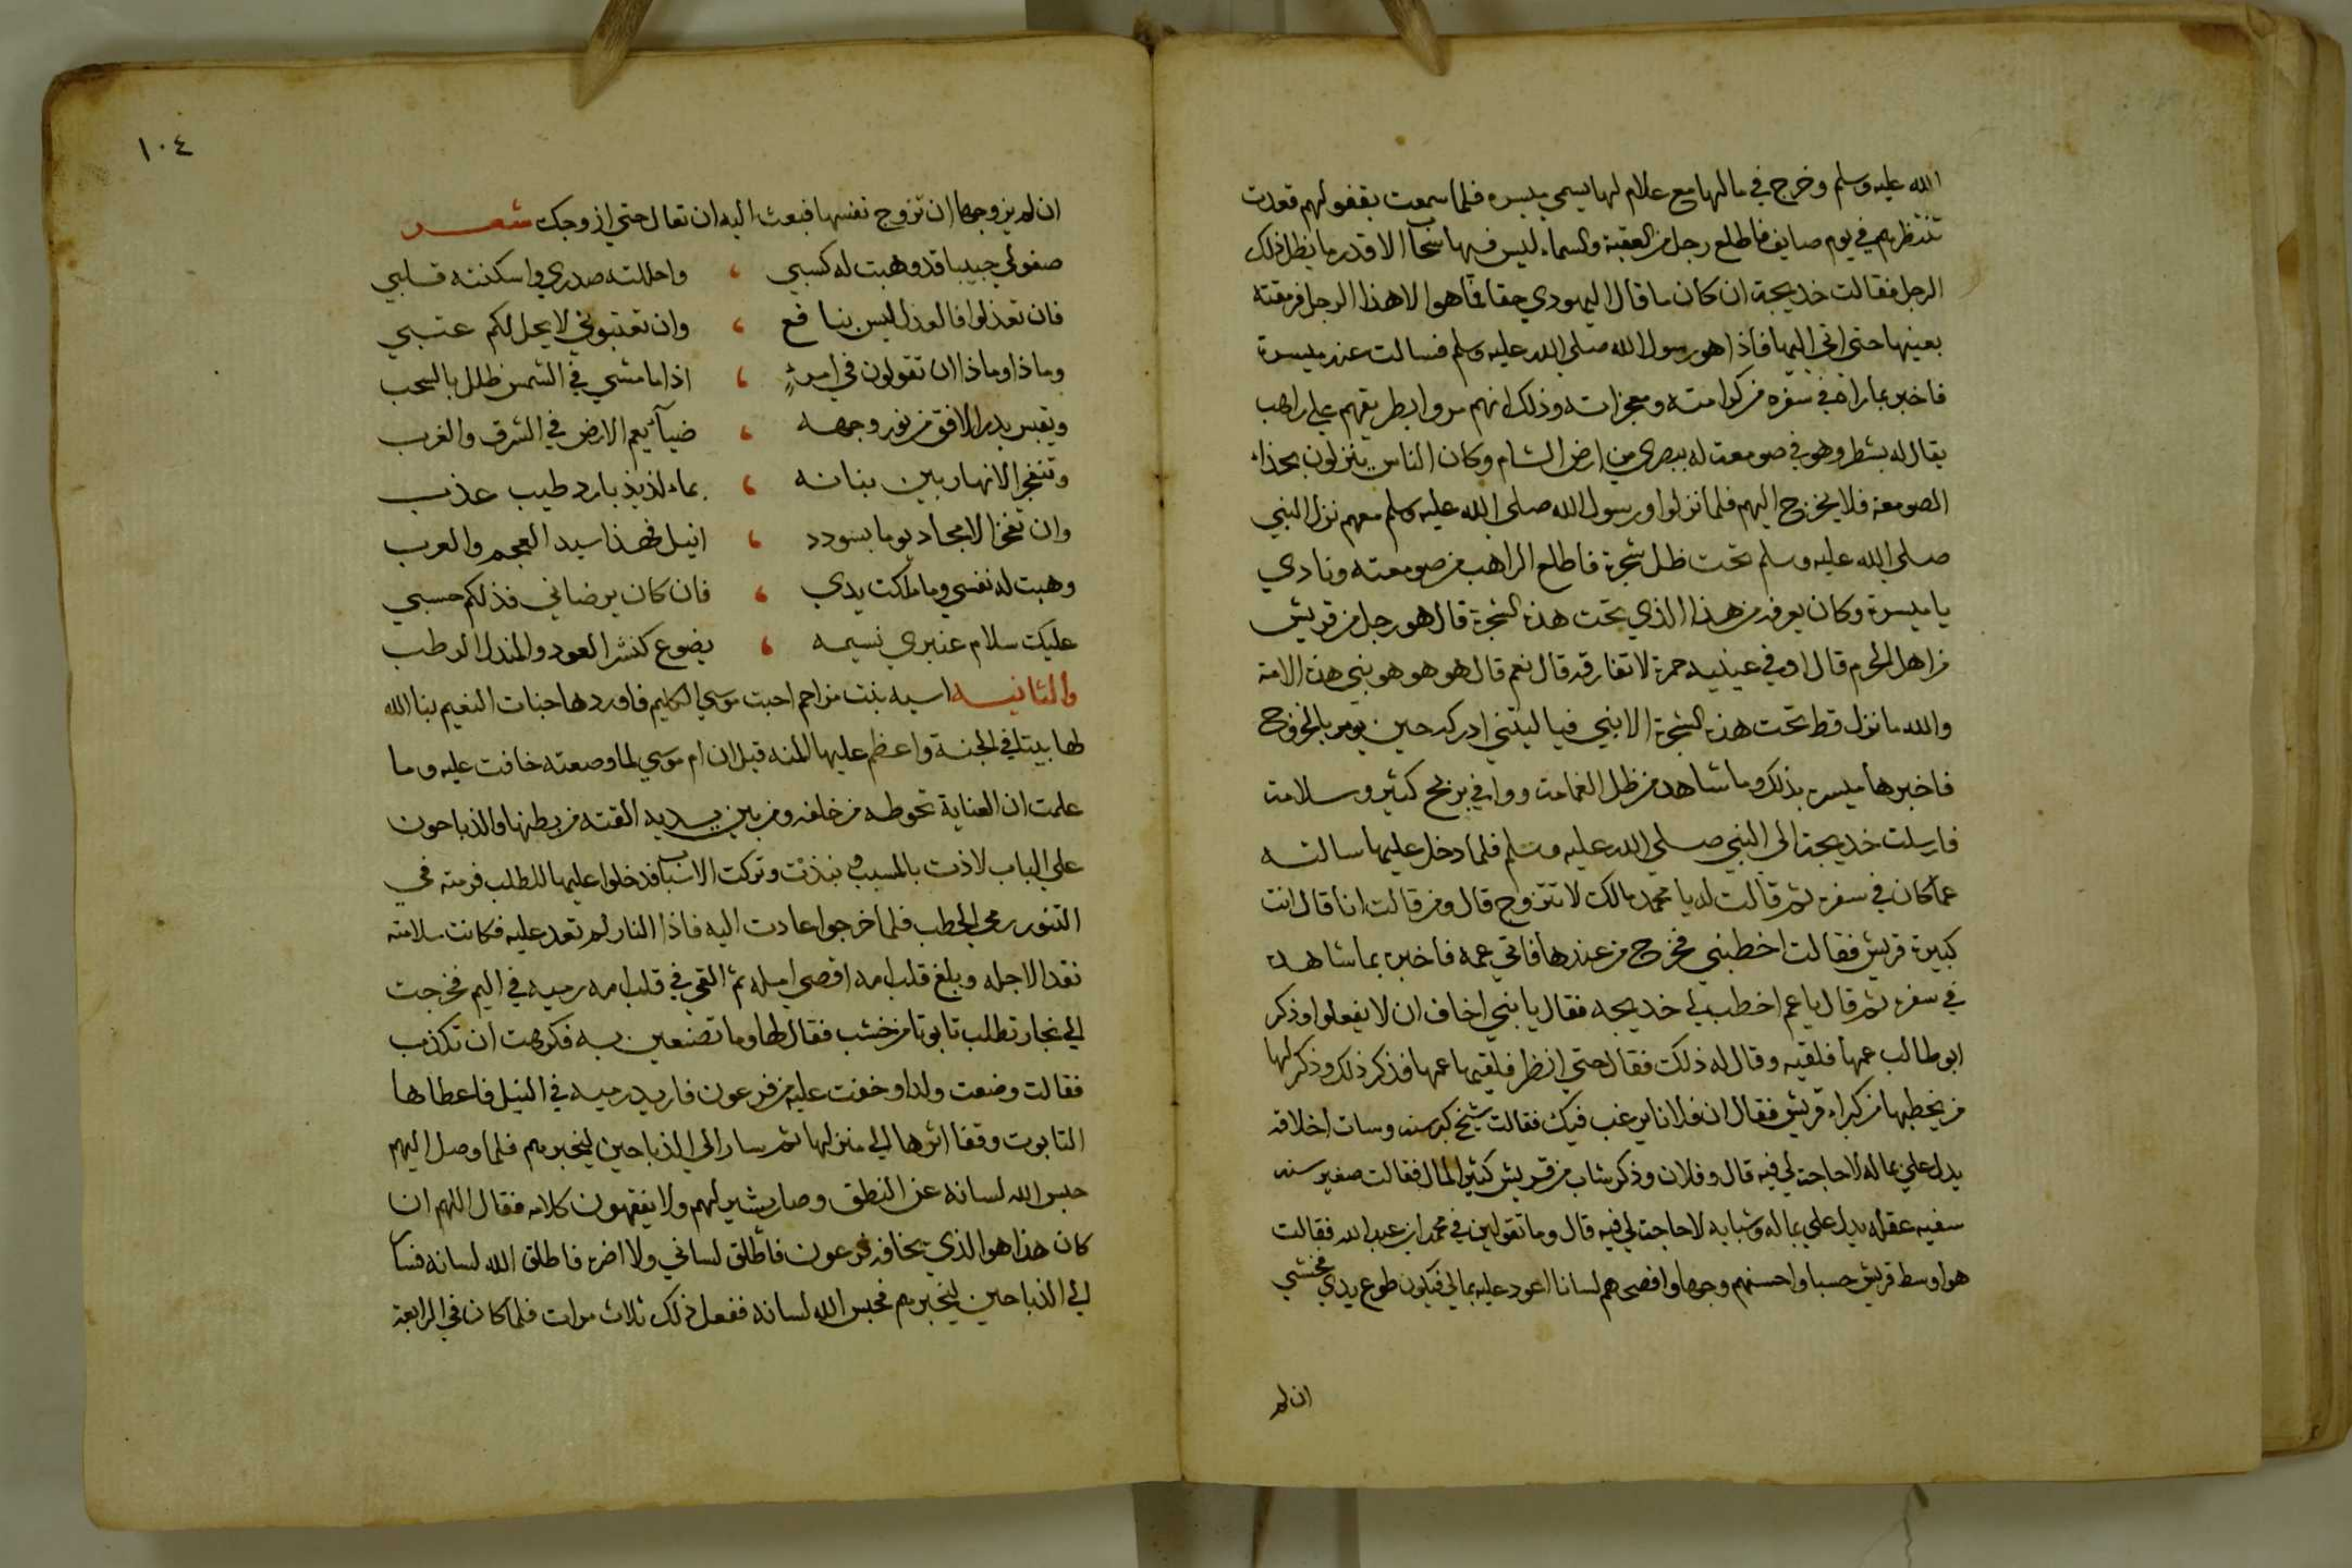 الله عليه وسلم وخرج في مالها مع غلام لها يسمي ميسره فلما سمعت بقفولهم قعدت
تنتظرهم في يوم صايف فاطلع رجل من العقبة والسماء ليس فيها سحاب الا قدر ما يظل ذلك
الرجل فقالت خديجة ان كان ما قال اليهودي حقا فما هو الا هذا الرجل فرمقته
بعينها حتي اتي اليها فاذا هو رسول الله صلي الله عليه وسلم فسالت عنه ميسرة
فاخبر بما راه في سفره من كرامته ومعجزاته وذلك انهم مروا بطريقهم علي راهب
يقال له بشطر وهو في صومعته له ببصري من ارض الشام وكان الناس ينزلون بحذاء
الصومعة فلا يخرج اليهم فلما نزلوا ورسول الله صلي الله عليه وسلم معهم نزل النبي
صلي الله عليه وسلم تحت ظل شجرة فاطلع الراهب من صومعته ونادي
يا ميسرة وكان يعرفه من هذا الذي تحت هذه الشجرة قال هو رجل من قريش
من اهل الحرم قال اوفي عينيه حمرة لا تفارقه قال نعم قال هو هو هو نبي هذه الامة
والله ما نزل قط تحت هذه الشجرة الا نبي فيا ليتني ادركه حين يومر بالخروج
فاخبرها ميسره بذلك وما شاهد من ظل الغمامة ووافي بربح كثير وسلامة
فارسلت خديجة الي النبي صلي الله عليه وسلم فلما دخل عليها سالته
عما كان في سفره ثم قالت له يا محمد مالك لا تتزوج قال ومن قالت انا قال انت
كبيرة قريش فقالت اخطبني فخرج من عندها فاتي عمه فاخبره بما شاهده
في سفره ثم قال يا عم اخطب لي خديجه فقال يا بني اخاف ان لا يفعلوا وذكر
ابو طالب عمها فلقيه وقال له ذلك فقال حتي انظر فلقيها عمها فذكر ذلك وذكر لها
من يخطبها من كبراء قريش فقال ان فلانا يرغب فيك فقالت شيخ كبر سنه وسات اخلاقه
يدل علي بماله لا حاجة لي فيه قال وفلان وذكر شاب من قريش كثير المال فقالت صغير سنه
سفيه عقله يدل علي بماله وشبابه لا حاجة لي فيه قال وما تقولين في محمد ابن عبد الله فقالت
هو اوسط قريش حسبا واحسنهم وجها وافصحهم لسانا اعود عليه بمالي فيكون طوع يدي فخشي
ان لم
١٠٤
ان لم يزوجها ان تزوج نفسها فبعث اليه ان تعال حتي ازوجك شعر
صفو لي حبيبا قد وهبت له كسبي ، واحللته صدري واسكنته قلبي
فان تعذلوا فالعذل ليس بنافع ، وان تعتبوني لا يحل لكم عتبي
وماذا وماذا ان تقولون في امرئٍ ، اذا ما مشي في الشمس ظلل بالسحب
ويقبس بدر الافق من نور وجهه ، ضيآ يعم الارض في الشرق والغرب
وتنفجر الانهار بين بنانه ، بماء لذيذ بارد طيب عذب
وان تفخر الامجاد يوما بسودد ، انيل فهذا سيد العجم والعرب
وهبت له نفسي وما ملكت يدي ، فان كان يرضاني فذلكم حسبي
عليك سلام عنبري نسيمه ، يضوع كنشر العود والمندل الرطب
والثانيه اسيه بنت مزاحم احبت موسي الكليم فاوردها جنات النعيم بنا الله
لها بيتا في الجنة واعظم عليها المنه قيل ان ام موسي لما وضعته خافت عليه وما
علمت ان العناية تحوطه من خلفه ومن بين يديه القته من بطنها والذباحون
علي الباب لاذت بالمسبب ونبذت وتركت الاسباب فدخلوا عليها للطلب فرمته في
التنور رمي الحطب فلما خرجوا عادت اليه فاذا النار لم تعد عليه فكانت سلامته
نقدا لاجله وبلغ قلب امه اقصي امله ثم القي في قلب امه رميه في اليم فخرجت
الي نجار تطلب تابوتا من خشب فقال لها وما تصنعين به فكرهت ان تكذب
فقالت وضعت ولدا وخفت عليه من فرعون فاريد رميه في النيل فاعطاها
التابوت وقفا اثرها الي منزلها ثم سار الي الذباحين ليخبرهم فلما وصل اليهم
حبس الله لسانه عن النطق وصار يشير لهم ولا يفقهون كلامه فقال اللهم ان
كان هذا هو الذي يخافه فرعون فاطلق لساني ولا اضره فاطلق الله لسانه فسار
الي الذباحين ليخبرهم فحبس الله لسانه ففعل ذلك ثلاث مرات فلما كان في الرابعة